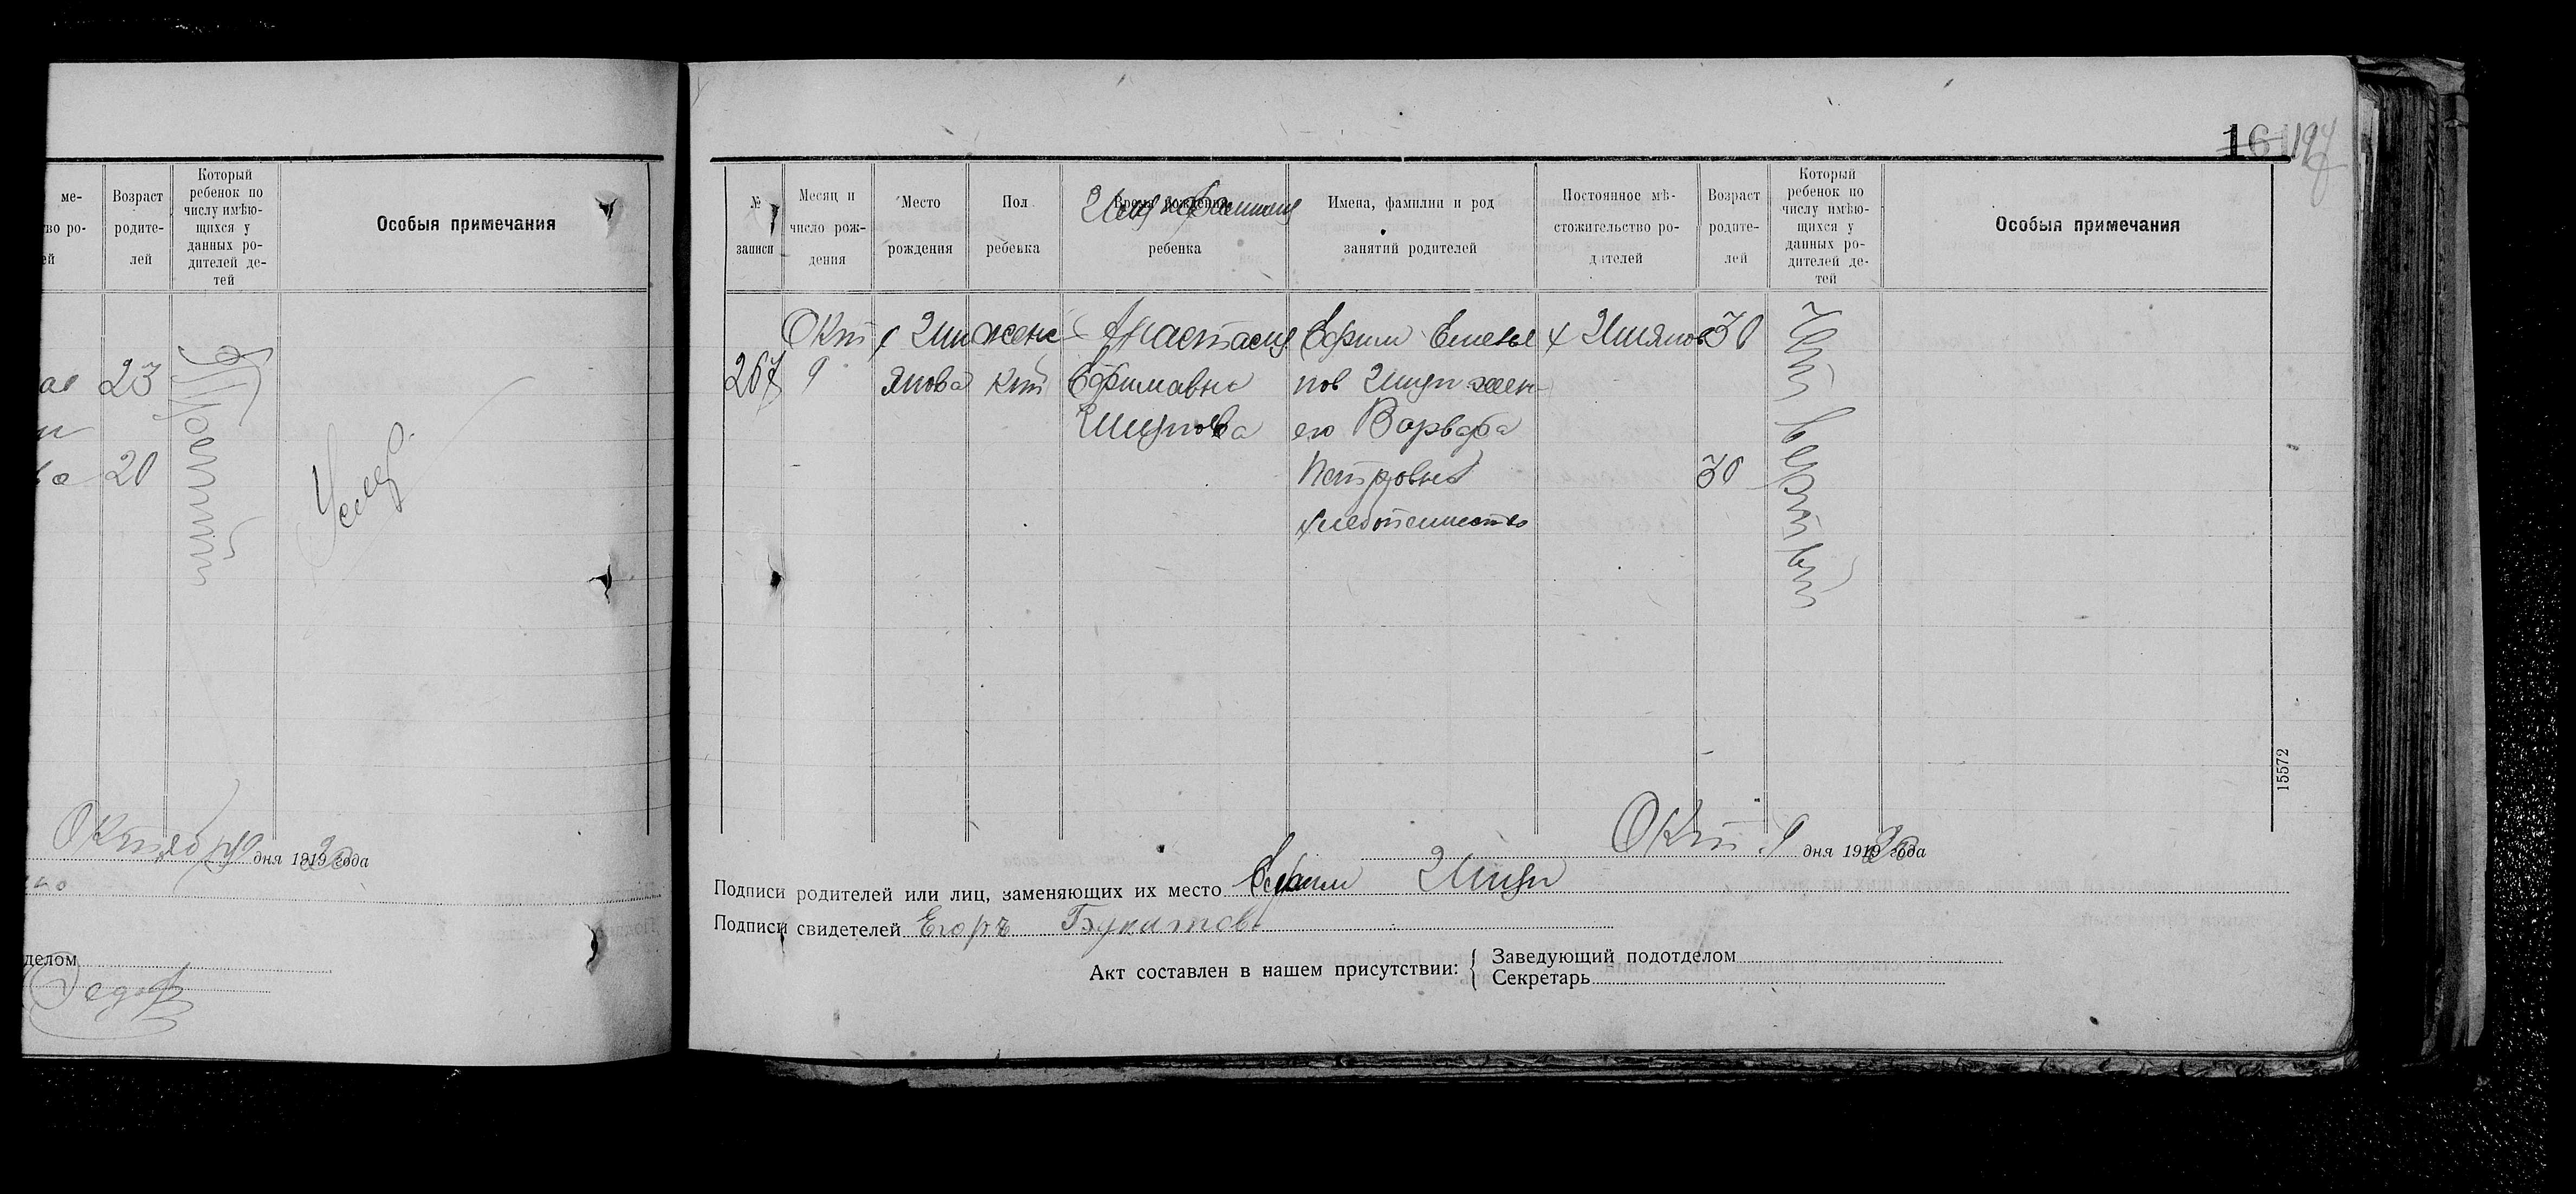 16 194
ме-
во ро-
ей
Возраст
родите-
лей
Который
ребенок по
числу имѣю-
щихся у
данных ро-
дителей де-
тей
Особыя примечания
ая 23
20
Третий
Умер.
Октябр 9 дня 1919 20 года
делом
Федор
№
записи
Месяц и
число рож-
дения
Место
рождения
Пол
ребенка
Время рождения
Имя и фамилия
ребенка
Имена, фамилии и род
занятий родителей
Постоянное мѣ-
стожительство ро-
дителей
Возраст
родите-
лей
Который
ребенок по
числу имѣю-
щихся у
данных ро-
дителей де-
тей
Особыя примечания
Окт женс- Анастасия Ефим Емелья 30
267 9 кий Ефимавна нов жен-
его Варвара
Петровна 30
хлебопашество
Четвертый
15572
Окт. 9 дня 1919 20 года
Подписи родителей или лиц, заменяющих их место Ефим
Подписи свидетелей Егоръ Букатовъ
Акт составлен в нашем присутствии: { Заведующий подотделом
Секретарь